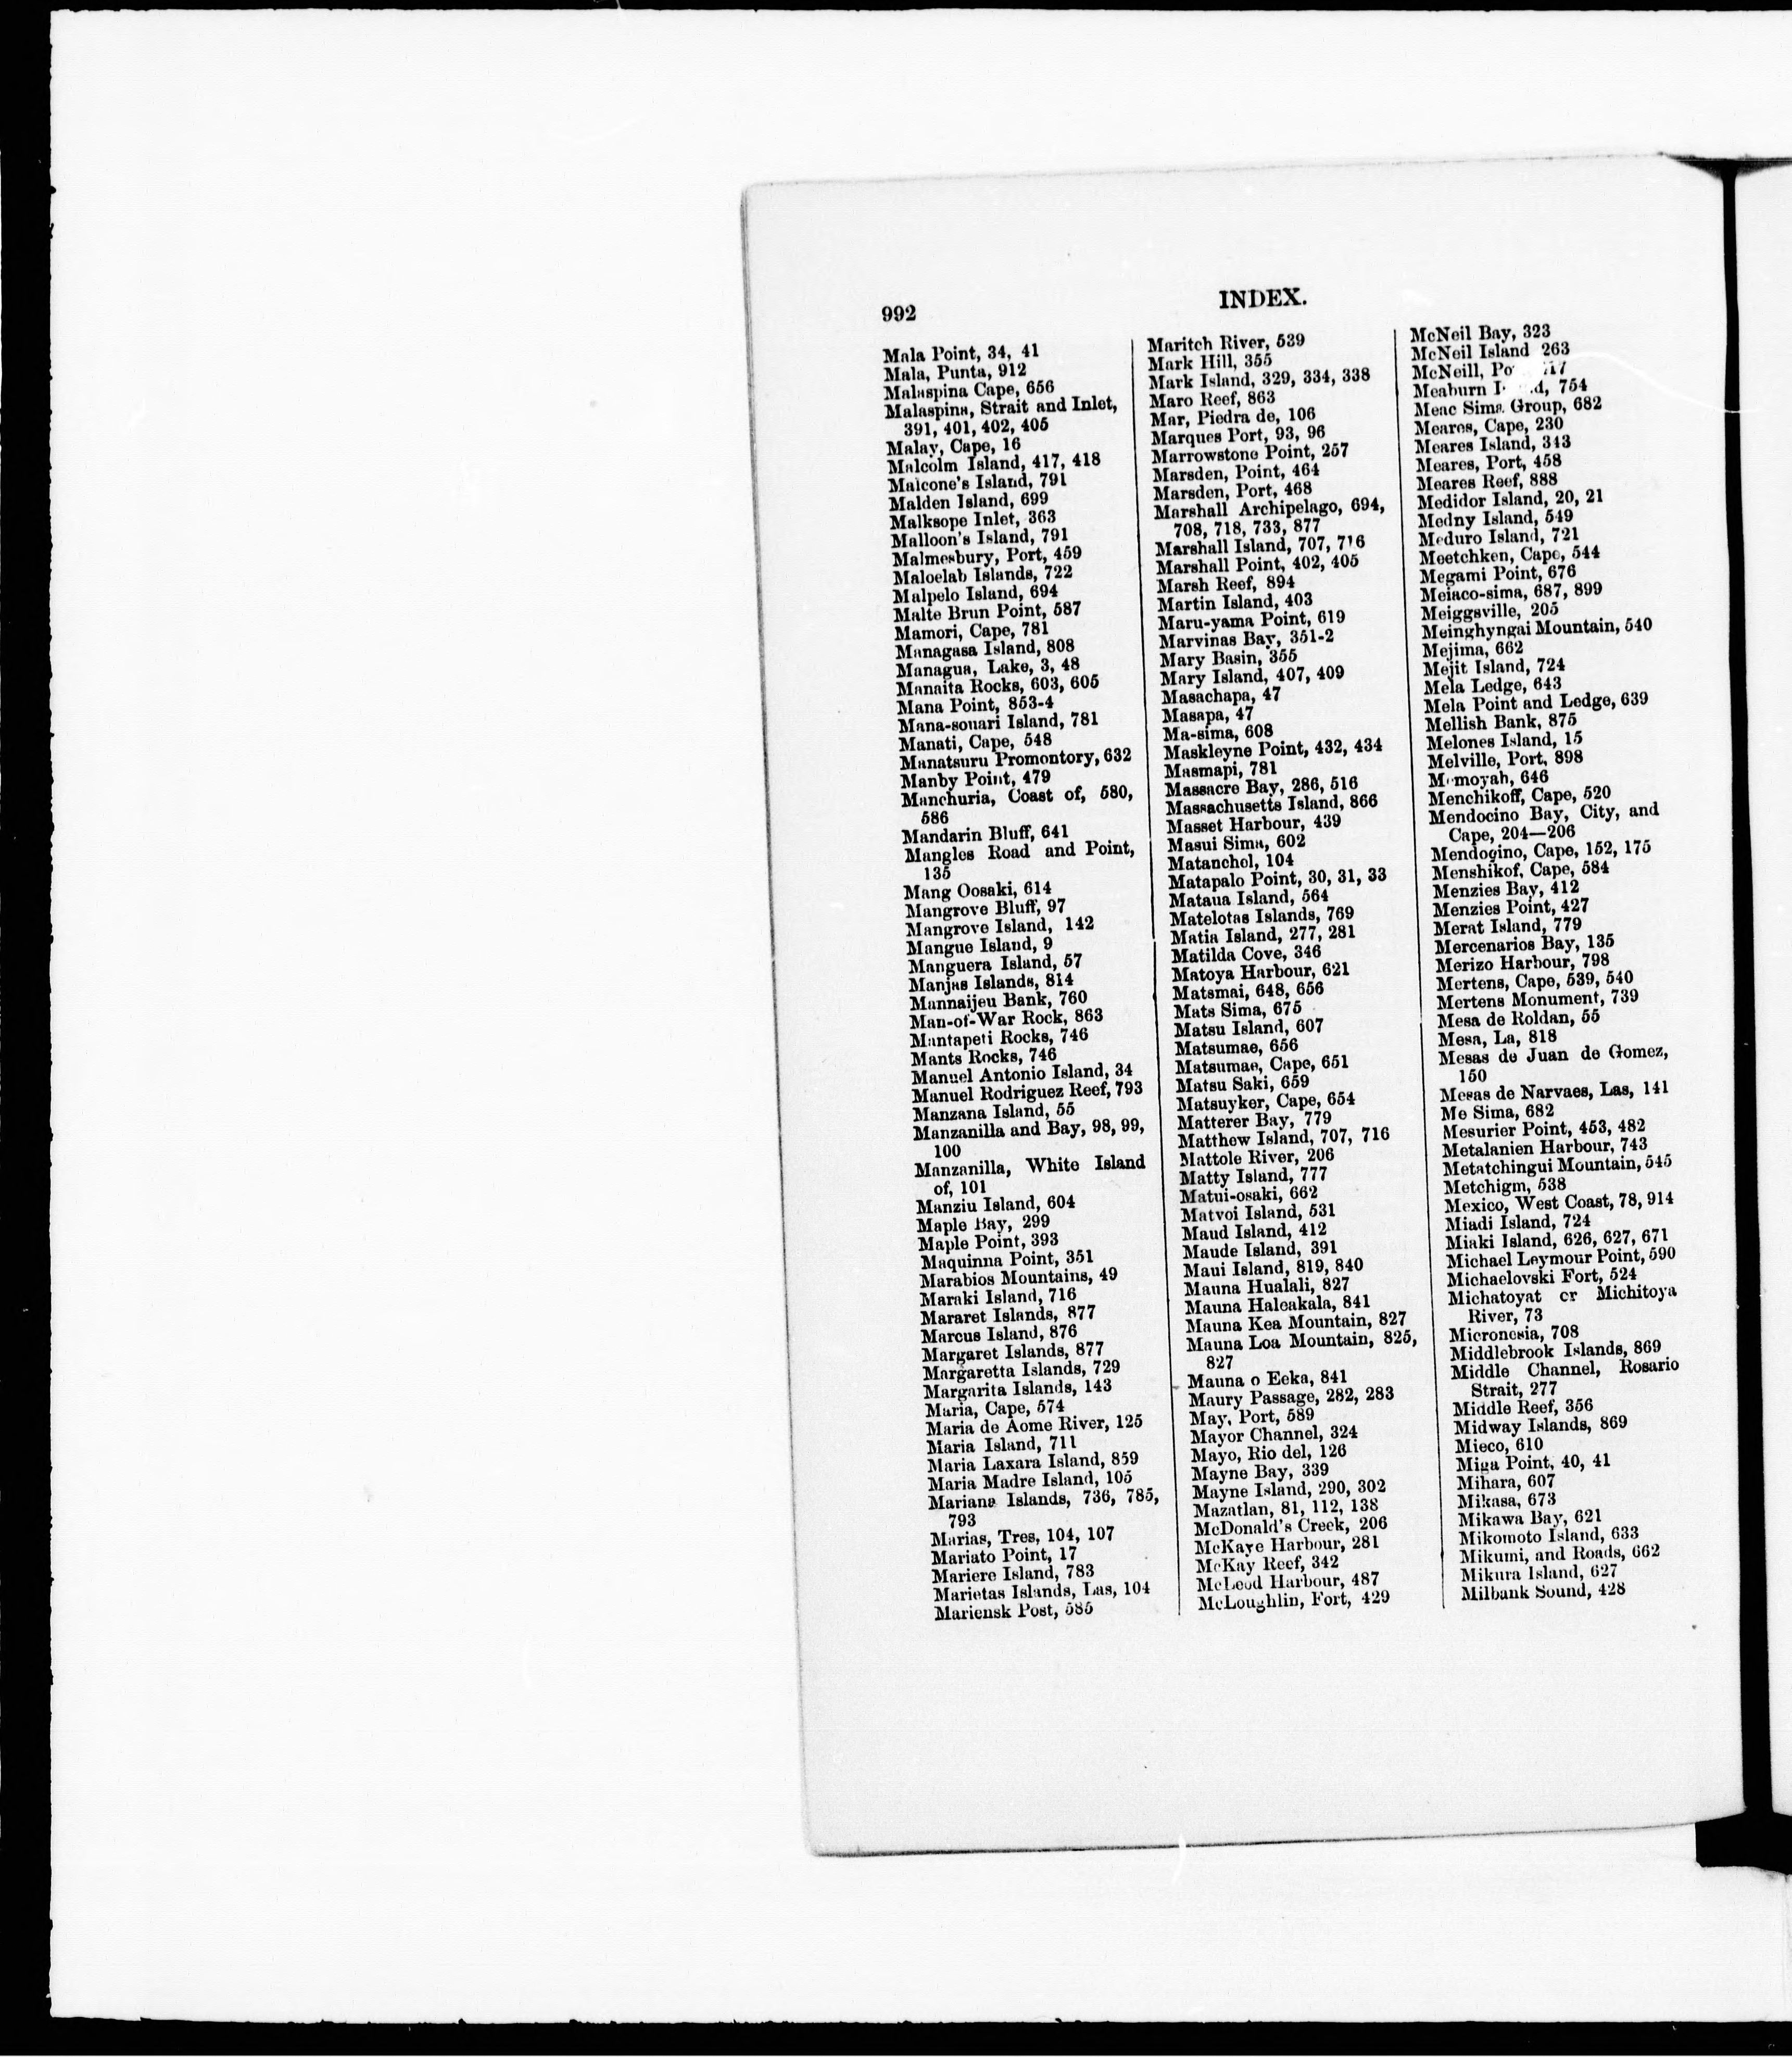 992
INDEX.
Mala Point, 34, 41
Mala, Punta, 912
Malaspina Cape, 656
Malaspina, Strait and Inlet,
391, 401, 402, 405
Malay, Cape, 16
Malcolm Island, 417, 418
Malcone's Island, 791
Malden Island, 699
Malksope Inlet, 363
Malloon's Island, 791
Malmesbury, Port, 459
Maloelab Islands, 722
Malpelo Island, 694
Malte Brun Point, 587
Mamori, Cape, 781
Managasa Island, 808
Managua, Lake, 3, 48
Manaita Rocks, 603, 605
Mana Point, 853-4
Mana-souari Island, 781
Manati, Cape, 548
Manatsuru Promontory, 632
Manby Point, 479
Manchuria, Coast of, 580,
586
Mandarin Bluff, 641
Mangles Road and Point,
135
Mang Oosaki, 614
Mangrove Bluff, 97
Mangrove Island, 142
Mangue Island, 9
Manguera Island, 57
Manjas Islands, 814
Mannaijeu Bank, 760
Man-of-War Rock, 863
Mantapeti Rocks, 746
Mants Rocks, 746
Manuel Antonio Island, 34
Manuel Rodriguez Reef, 793
Manzana Island, 55
Manzanilla and Bay, 98, 99,
100
Manzanilla, White Island
of, 101
Manziu Island, 604
Maple Bay, 299
Maple Point, 393
Maquinna Point, 351
Marabios Mountains, 49
Maraki Island, 716
Mararet Islands, 877
Marcus Island, 876
Margaret Islands, 877
Margaretta Islands, 729
Margarita Islands, 143
Maria, Cape, 574
Maria de Aome River, 125
Maria Island, 711
Maria Laxara Island, 859
Maria Madre Island, 105
Mariana Islands, 736, 785,
793
Marias, Tres, 104, 107
Mariato Point, 17
Mariere Island, 783
Marietas Islands, Las, 104
Mariensk Post, 585
Maritch River, 539
Mark Hill, 355
Mark Island, 329, 334, 338
Maro Reef, 863
Mar, Piedra de, 106
Marques Port, 93, 96
Marrowstone Point, 257
Marsden, Point, 464
Marsden, Port, 468
Marshall Archipelago, 694,
708, 718, 733, 877
Marshall Island, 707, 716
Marshall Point, 402, 405
Marsh Reef, 894
Martin Island, 403
Maru-yama Point, 619
Marvinas Bay, 351-2
Mary Basin, 355
Mary Island, 407, 409
Masachapa, 47
Masapa, 47
Ma-sima, 608
Maskleyne Point, 432, 434
Masmapi, 781
Massacre Bay, 286, 516
Massachusetts Island, 866
Masset Harbour, 439
Masui Sima, 602
Matanchel, 104
Matapalo Point, 30, 31, 33
Mataua Island, 564
Matelotas Islands, 769
Matia Island, 277, 281
Matilda Cove, 346
Matoya Harbour, 621
Matsmai, 648, 656
Mats Sima, 675
Matsu Island, 607
Matsumae, 656
Matsumae, Cape, 651
Matsu Saki, 659
Matsuyker, Cape, 654
Matterer Bay, 779
Matthew Island, 707, 716
Mattole River, 206
Matty Island, 777
Matui-osaki, 662
Matvoi Island, 531
Maud Island, 412
Maude Island, 391
Maui Island, 819, 840
Mauna Hualali, 827
Mauna Haleakala, 841
Mauna Kea Mountain, 827
Mauna Loa Mountain, 825,
827
Mauna o Eeka, 841
Maury Passage, 282, 283
May, Port, 589
Mayor Channel, 324
Mayo, Rio del, 126
Mayne Bay, 339
Mayne Island, 290, 302
Mazatlan, 81, 112, 138
McDonald's Creek, 206
McKaye Harbour, 281
McKay Reef, 342
McLeod Harbour, 487
McLoughlin, Fort, 429
McNeil Bay, 323
McNeil Island 263
McNeill,
Meaburn 754
Meac Sima Group, 682
Meares, Cape, 230
Meares Island, 343
Meares, Port, 458
Meares Reef, 888
Medidor Island, 20, 21
Medny Island, 549
Meduro Island, 721
Meetchken, Cape, 544
Megami Point, 676
Meiaco-sima, 687, 899
Meiggsville, 205
Meinghyngai Mountain, 540
Mejima, 662
Mejit Island, 724
Mela Ledge, 643
Mela Point and Ledge, 639
Mellish Bank, 875
Melones Island, 15
Melville, Port, 898
Memoyah, 646
Menchikoff, Cape, 520
Mendocino Bay, City, and
Cape, 204—206
Mendoçino, Cape, 152, 175
Menshikof, Cape, 584
Menzies Bay, 412
Menzies Point, 427
Merat Island, 779
Mercenarios Bay, 135
Merizo Harbour, 798
Mertens, Cape, 539, 540
Mertens Monument, 739
Mesa de Roldan, 55
Mesa, La, 818
Mesas de Juan de Gomez,
150
Mesas de Narvaes, Las, 141
Me Sima, 682
Mesurier Point, 453, 482
Metalanien Harbour, 743
Metatchingui Mountain, 545
Metchigm, 538
Mexico, West Coast, 78, 914
Miadi Island, 724
Miaki Island, 626, 627, 671
Michael Leymour Point, 590
Michaelovski Fort, 524
Michatoyat or Michitoya
River, 73
Micronesia, 708
Middlebrook Islands, 869
Middle Channel, Rosario
Strait, 277
Middle Reef, 356
Midway Islands, 869
Mieco, 610
Miga Point, 40, 41
Mihara, 607
Mikasa, 673
Mikawa Bay, 621
Mikomoto Island, 633
Mikumi, and Roads, 662
Mikura Island, 627
Milbank Sound, 428